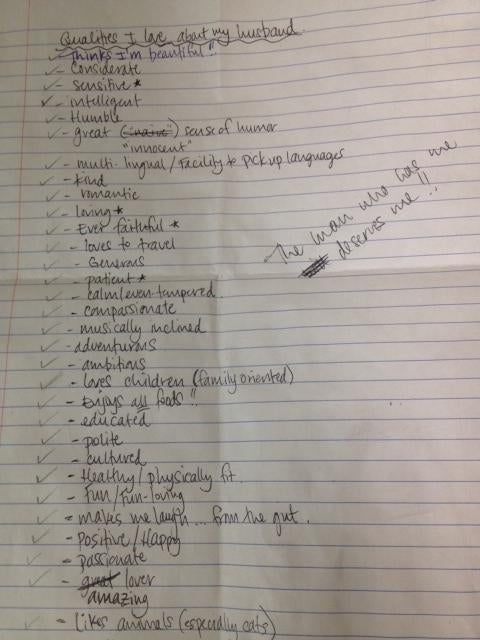 Qualities I love about my husband.
✓- Thinks I'm beautiful!!
✓- Considerate
✓- sensitive ★
✓- intelligent
✓- Humble
✓- great (naive) sense of humor
"innocent"
✓- multi-lingual/Facility to pick up languages
✓- Kind
✓- romantic
✓- loving ★
✓- Ever faithful ★
✓- loves to travel
✓- Generous
✓- patient ★
✓- calm/even-tampered.
✓- compassionate
✓- musically inclined
✓-adventurous
✓- ambitious
✓- loves children (family oriented)
✓- Enjoys all foods!!
✓- educated
✓- polite
✓- cultured
✓- Healthy/physically fit.
✓- fun/fun-loving
✓- makes me laugh... from the gut.
✓- Positive/Happy
✓- passionate
✓- great lover
amazing
✓- Likes animals (especially cats)
The man who has me
deserves me!!